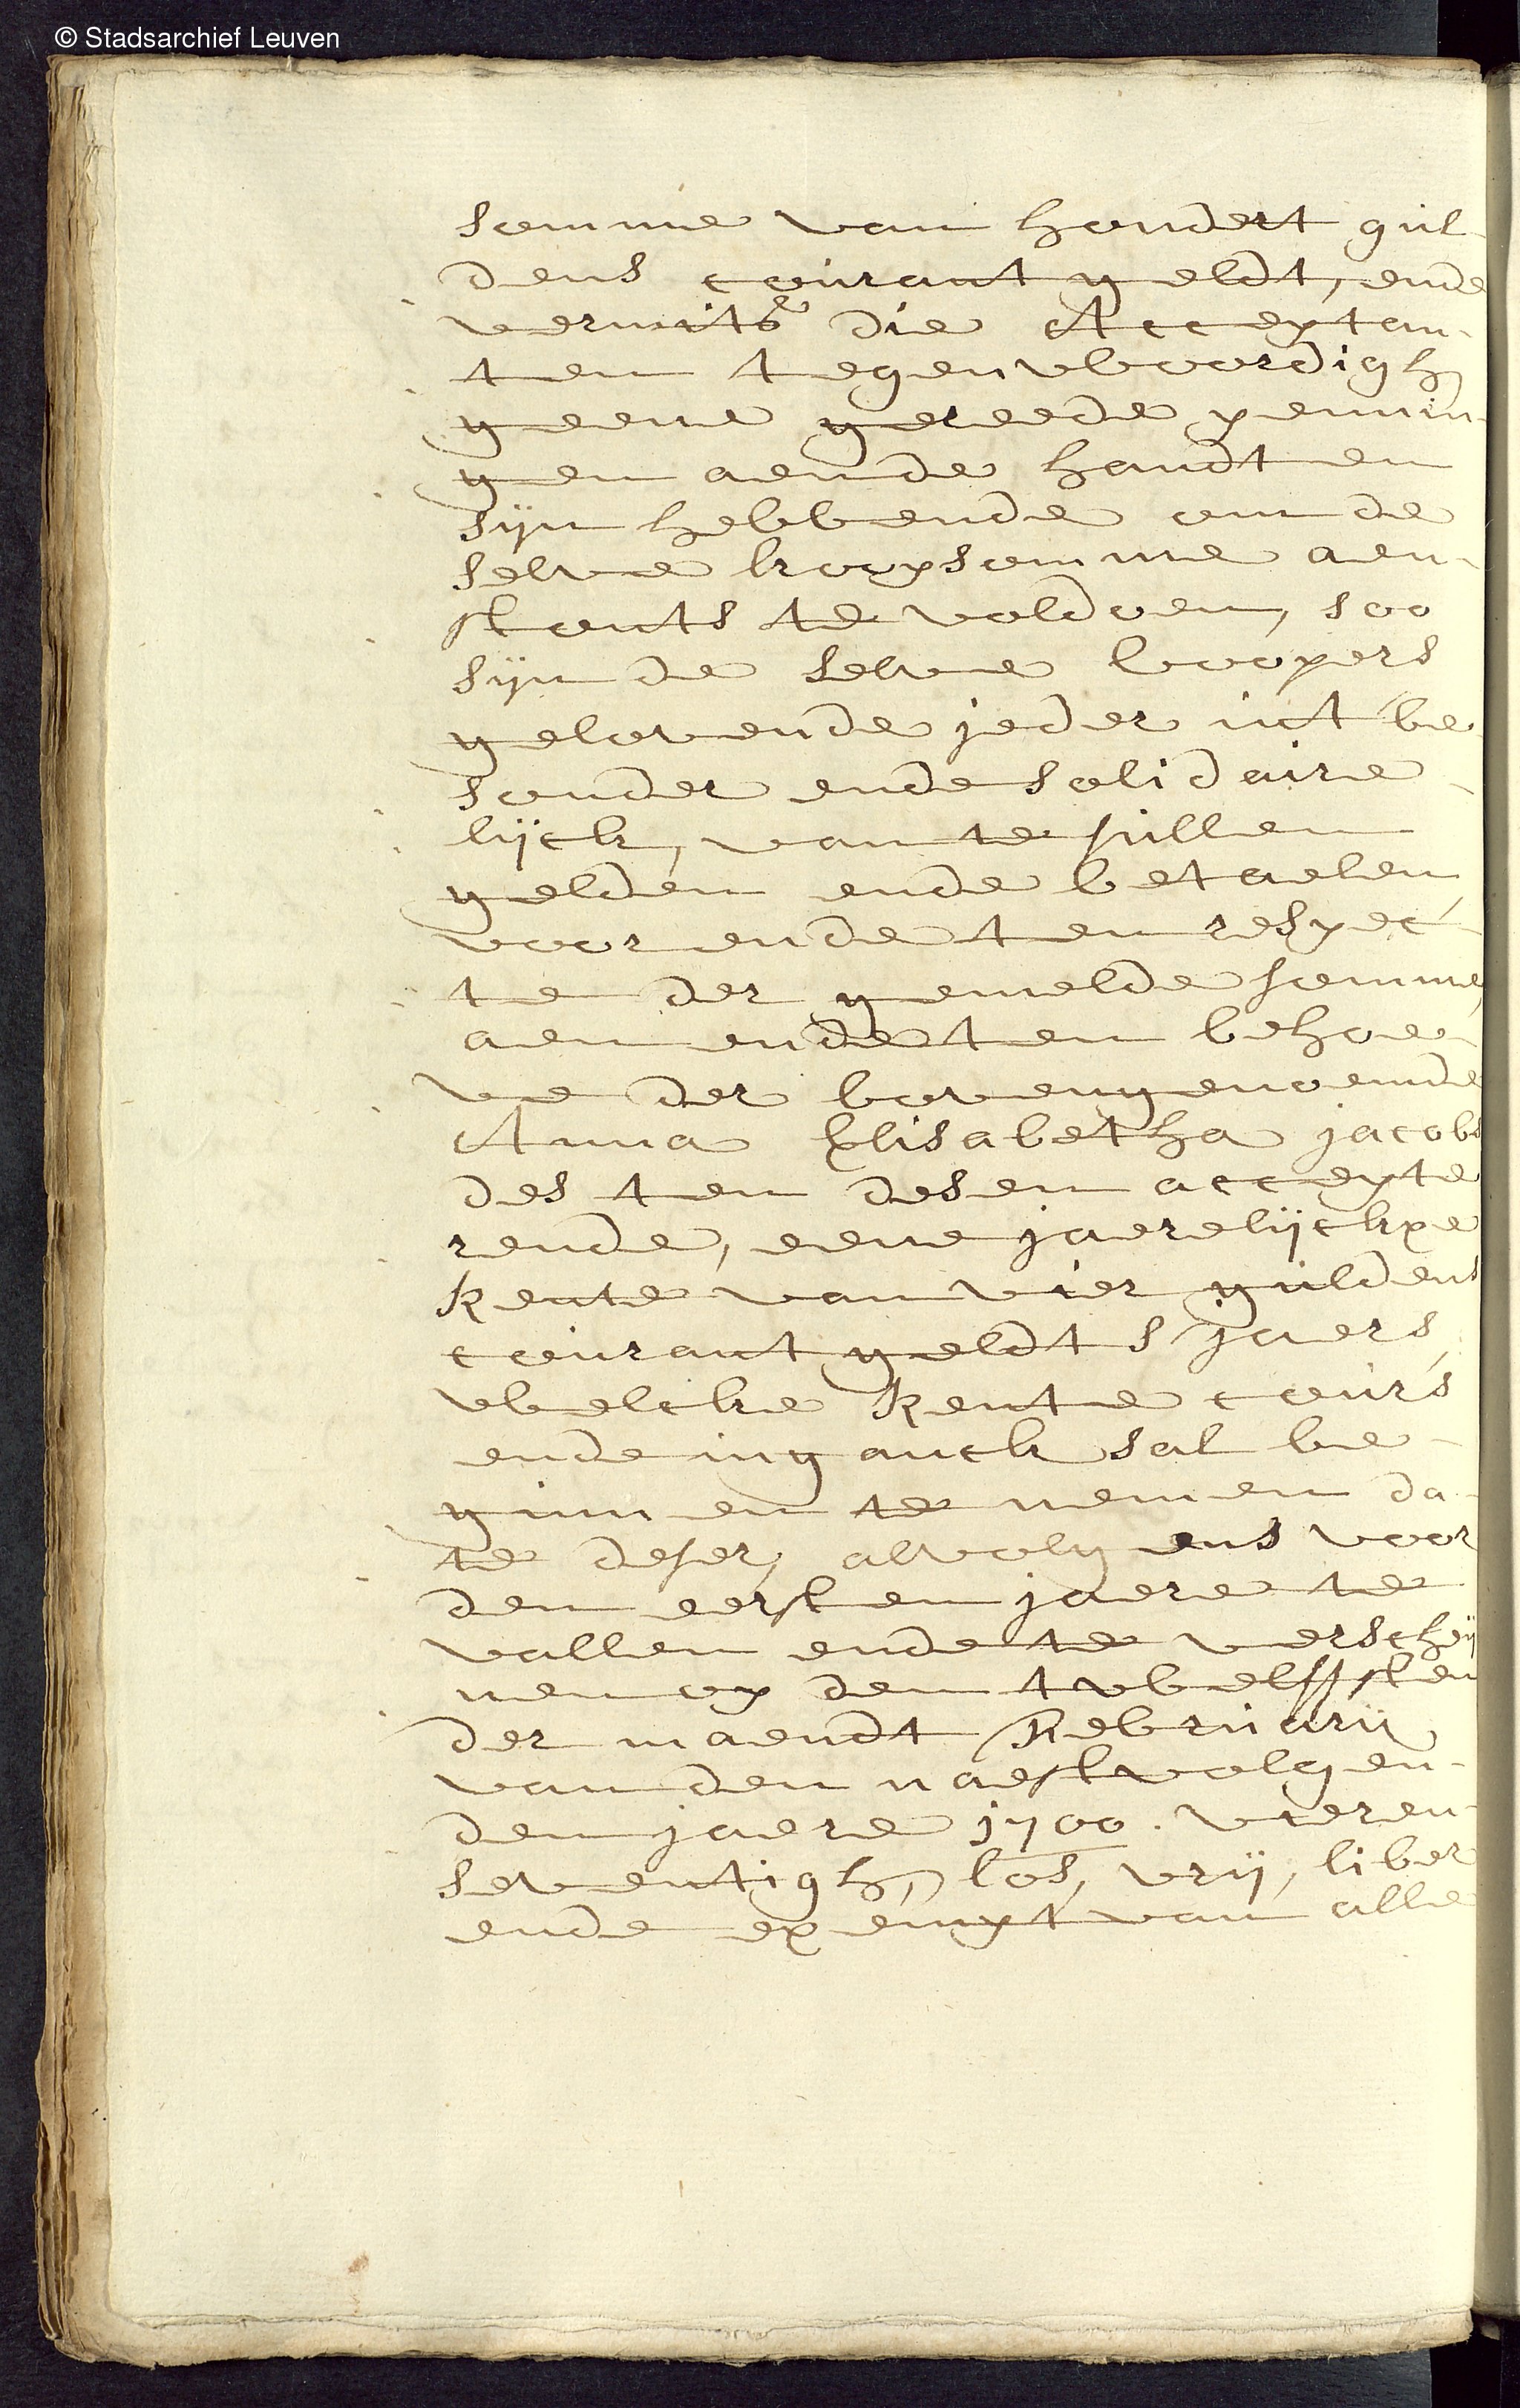 © Stadsarchief Leuven
somme van hondert gul
dens courant geldt, ende
vermits die Acceptan-
ten tegenwoordigh
geene gereede pennin-
gen aende handt en
sijn hebbende om de
selve koopsomme aen-
stonts te voldoen, soo
sijn de selve koopers
gelovende jeder int be
sonder ende solidaire-
lijck, van te sullen
gelden ende betaelen
voor ende ten respec-
te der gemelde somme,
aen ende ten behoe-
ve der bovengenoemde
Anna Elisabetha jacobs
des ten desen accepte
rende, eene jaerelijckxe
Rente van vier guldens
courant geldt s'jaers,
welcke Rente cours
ende inganck sal be-
ginnen te nemen da-
te deser, alvolgens voor
den eersten jaere te
vallen ende te verscheij
nen op den twelfsten
der maendt Februarij
van den naestvolgen-
den jaere 1700. vieren-
seventigh, los, vrij, liber
ende exempt van alle